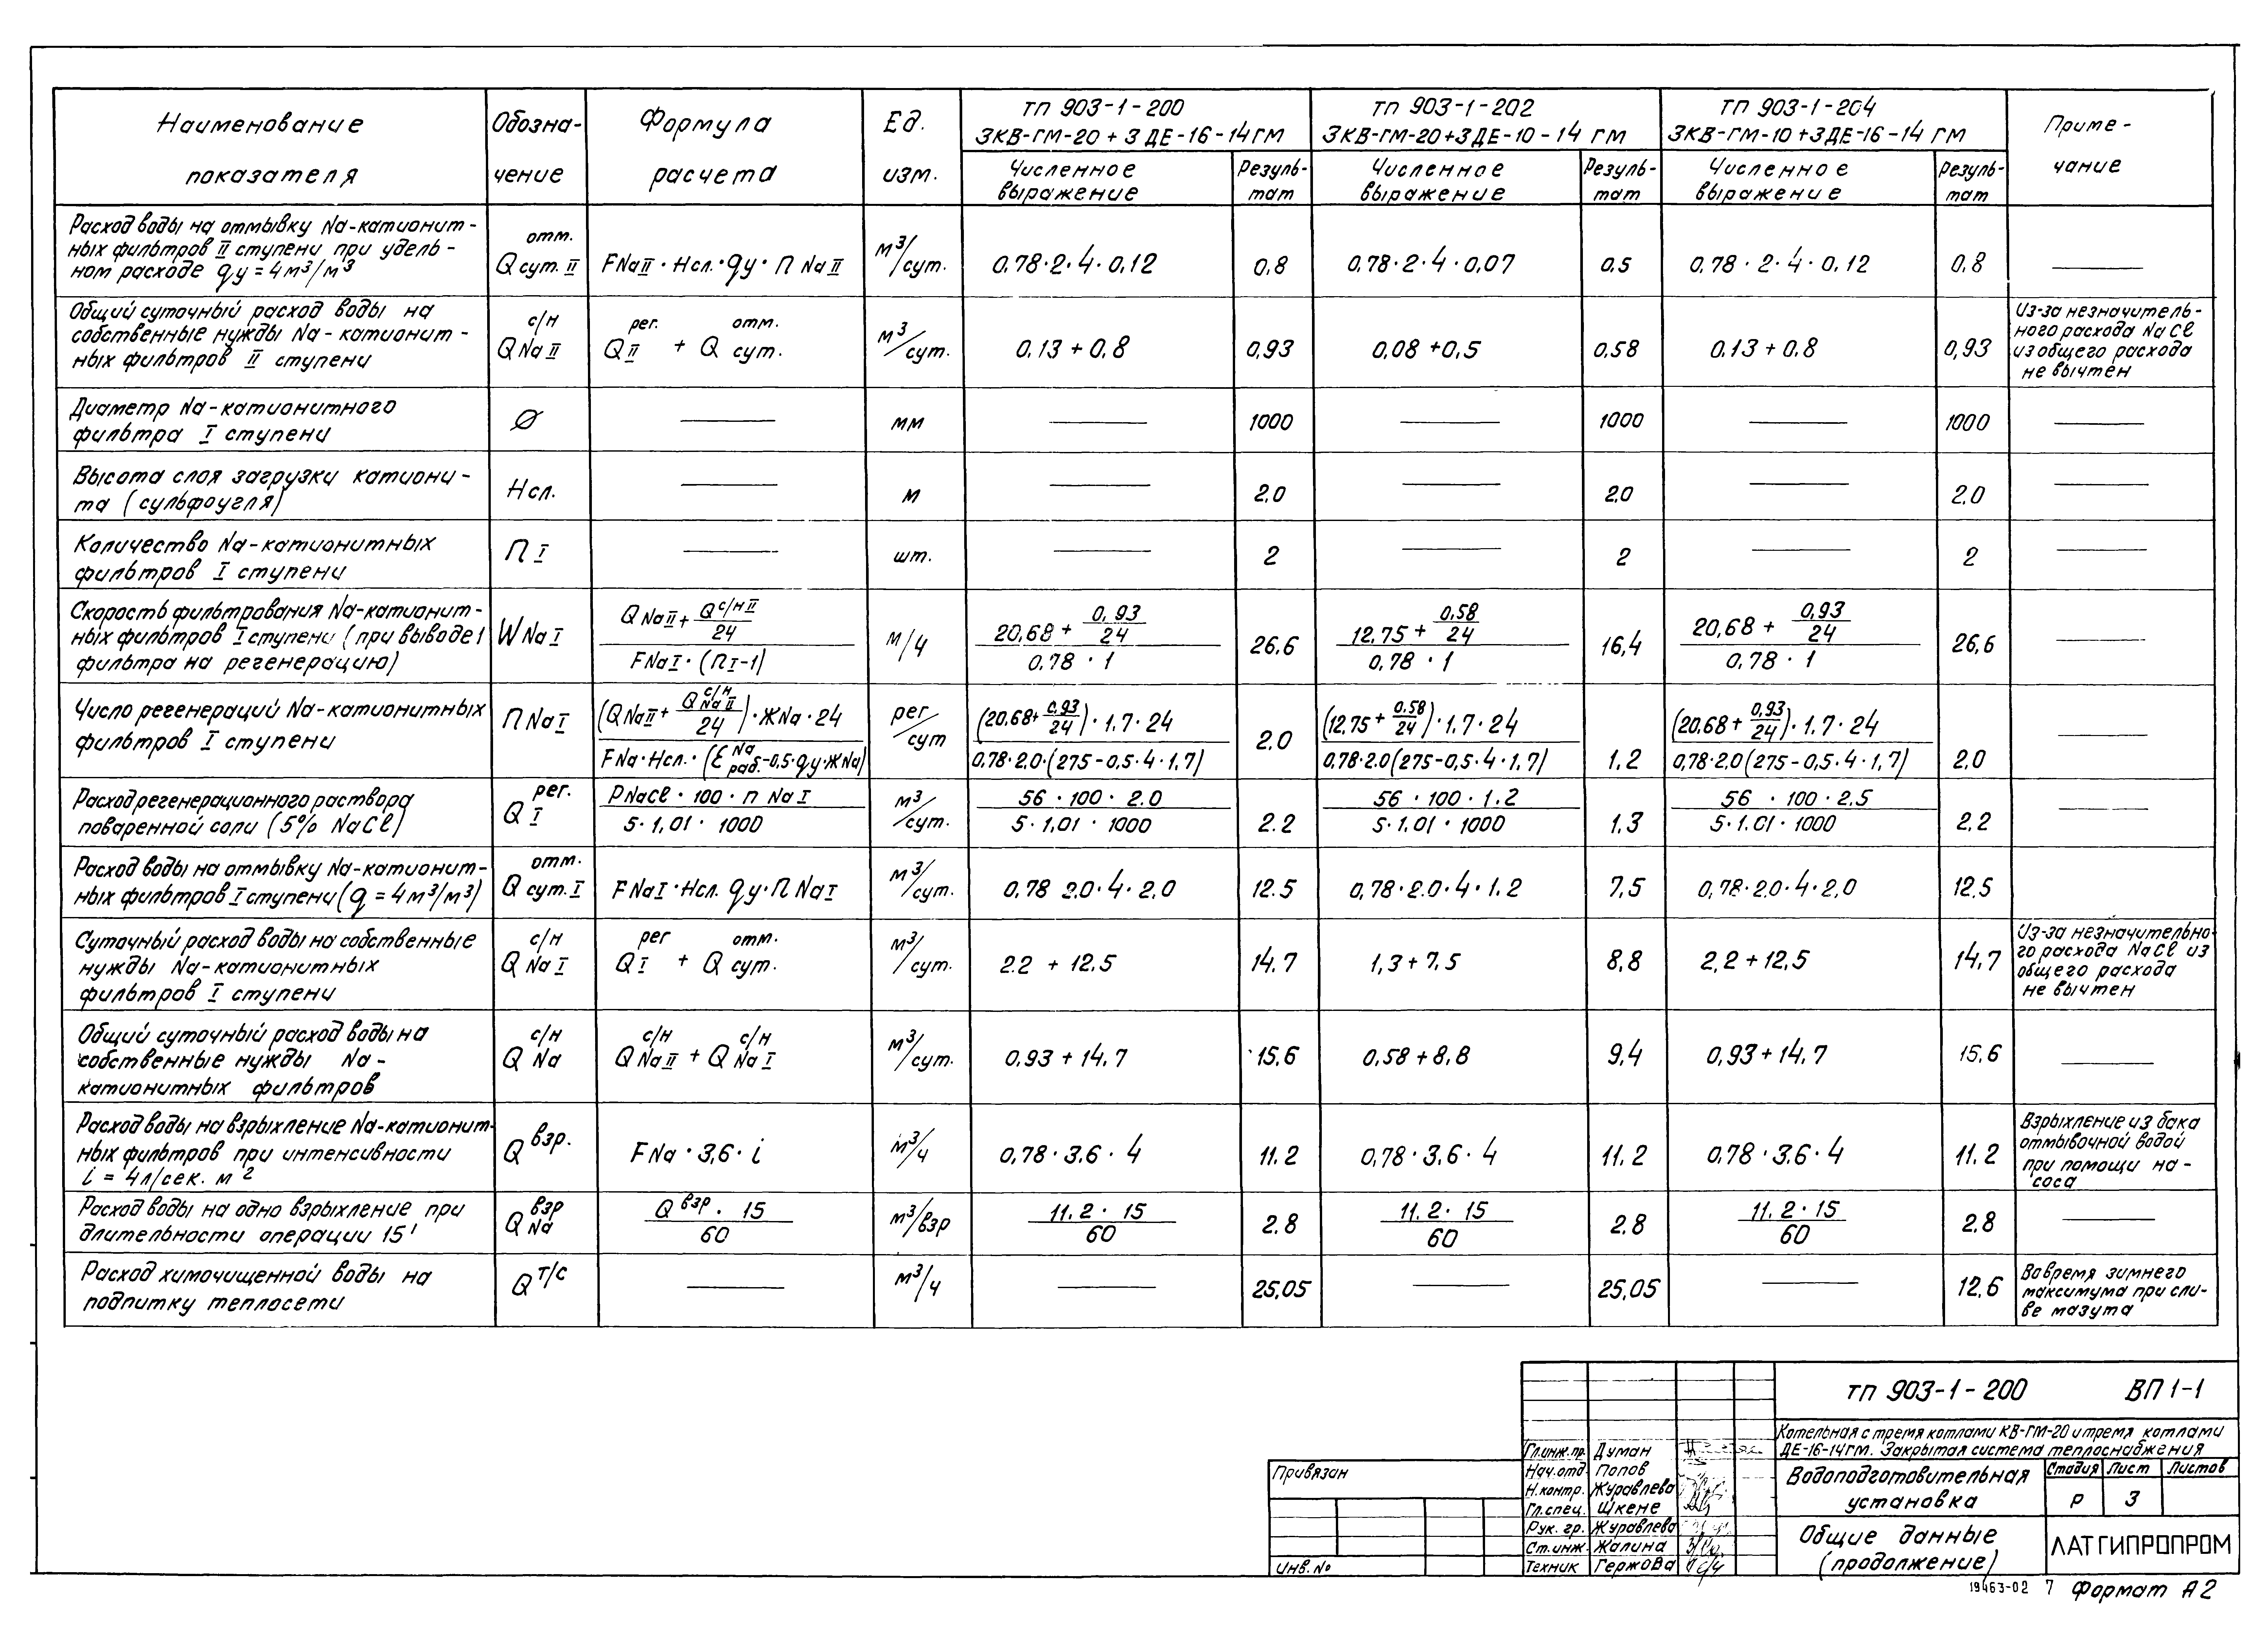 Наименование показателя
Обозна-чение
Формула расчета
Ед. изм.
ТП 903-1-200
3КВ-ГМ-20 + 3 ДЕ-16-14ГМ
ТП 903-1-202
3КВ-ГМ-20+3ДЕ-10-14 ГМ
ТП 903-1-204
3КВ-ГМ-10+3ДЕ-16-14 ГМ
Приме-чание
Численное выражение
Резуль-тат
Численное выражение
Резуль-тат
Численное выражение
Резуль-тат
Расход воды на отмывку Na-катионит-
ных фильтров II ступени при удель-
ном расходе qу=4м³/м³
Q отм. сут. II
FNaII·Hсл.·qу·n NaII
м³/сут.
0,78·2·4·0,12
0,8
0,78·2·4·0,07
0,5
0,78·2·4·0,12
0,8
Общий суточный расход воды на
собственные нужды Na-катионит-
ных фильтров II ступени
Q с/н Na II
Q рег. II + Q отм. сут.
м³/сут.
0,13+0,8
0,93
0,08+0,5
0,58
0,13+0,8
0,93
Из-за незначитель-
ного расхода NaCl
из общего расхода
не вычтен
Диаметр Na-катионитного
фильтра I ступени
Ø
мм
1000
1000
1000
Высота слоя загрузки катиони-
та (сульфоугля)
Нсл.
м
2.0
2.0
2.0
Количество Na-катионитных
фильтров I ступени
n I
шт.
2
2
2
Скорость фильтрования Na-катионит-
ных фильтров I ступени (при выводе 1
фильтра на регенерацию)
W Na I
Q NaII + Q с/н II / 24
FNaI·(nI-1)
м/ч
20,68 + 0,93/24
0,78·1
26.6
12,75 + 0,58/24
0,78·1
16,4
20,68 + 0,93/24
0,78·1
26,6
Число регенераций Na-катионитных
фильтров I ступени
n Na I
(Q NaII + Q с/н Na II / 24)·ЖNa·24
FNa·Hсл.·(Е Na раб.-0,5·qу·ЖNa)
рег/сут
(20,68+0,93/24)·1,7·24
0,78·2.0·(275-0,5·4·1,7)
2.0
(12,75+0,58/24)·1,7·24
0,78·2.0(275-0,5·4·1,7)
1,2
(20,68+0,93/24)·1,7·24
0,78·2,0(275-0,5·4·1,7)
2,0
Расход регенерационного раствора
поваренной соли (5% NaCl)
Q рег. I
РNaCl·100·n Na I
5·1,01·1000
м³/сут.
56·100·2.0
5·1.01·1000
2.2
56·100·1.2
5·1,01·1000
1,3
56·100·2.5
5·1.01·1000
2,2
Расход воды на отмывку Na-катионит-
ных фильтров I ступени (q=4м³/м³)
Q отм. сут. I
FNaI·Hсл. qу·n NaI
м³/сут.
0,78 2.0·4·2,0
12.5
0,78·2.0·4·1.2
7,5
0,78·2.0·4·2,0
12,5
Суточный расход воды на собственные
нужды Na-катионитных
фильтров I ступени
Q с/н Na I
Q рег I + Q отм. сут.
м³/сут.
2.2 + 12,5
14,7
1,3+7,5
8,8
2,2+12,5
14,7
Из-за незначительно-
го расхода NaCl из
общего расхода
не вычтен
Общий суточный расход воды на
собственные нужды Na-
катионитных фильтров
Q с/н Na
Q с/н Na II + Q с/н Na I
м³/сут.
0.93+14,7
15,6
0,58+8,8
9,4
0,93+14,7
15,6
Расход воды на взрыхление Na-катионит-
ных фильтров при интенсивности
i = 4л/сек. м²
Q взр.
FNa·3,6·i
м³/ч
0,78·3,6·4
11.2
0,78·3,6·4
11.2
0,78·3,6·4
11.2
Взрыхление из бака
отмывочной водой
при помощи на-
соса
Расход воды на одно взрыхление при
длительности операции 15'
Q взр Na
Q взр. 15
60
м³/взр
11.2·15
60
2.8
11.2·15
60
2.8
11.2·15
60
2.8
Расход химочищенной воды на
подпитку теплосети
Q т/с
м³/ч
25,05
25,05
12,6
Во время зимнего
максимума при сли-
ве мазута
ТП 903-1-200 ВП1-1
Котельная с тремя котлами КВ-ГМ-20 и тремя котлами
ДЕ-16-14ГМ. Закрытая система теплоснабжения
Гл.инж.пр. Думан
Нач.отд. Попов
Н.контр. Журавлева
Гл.спец. Шкене
Рук. гр. Журавлева
Ст.инж. Жалина
Техник Гержова
Привязан
Инв.№
Водоподготовительная
установка
Стадия Лист Листов
Р 3
Общие данные
(продолжение)
ЛАТГИПРОПРОМ
19463-02 7 Формат А2